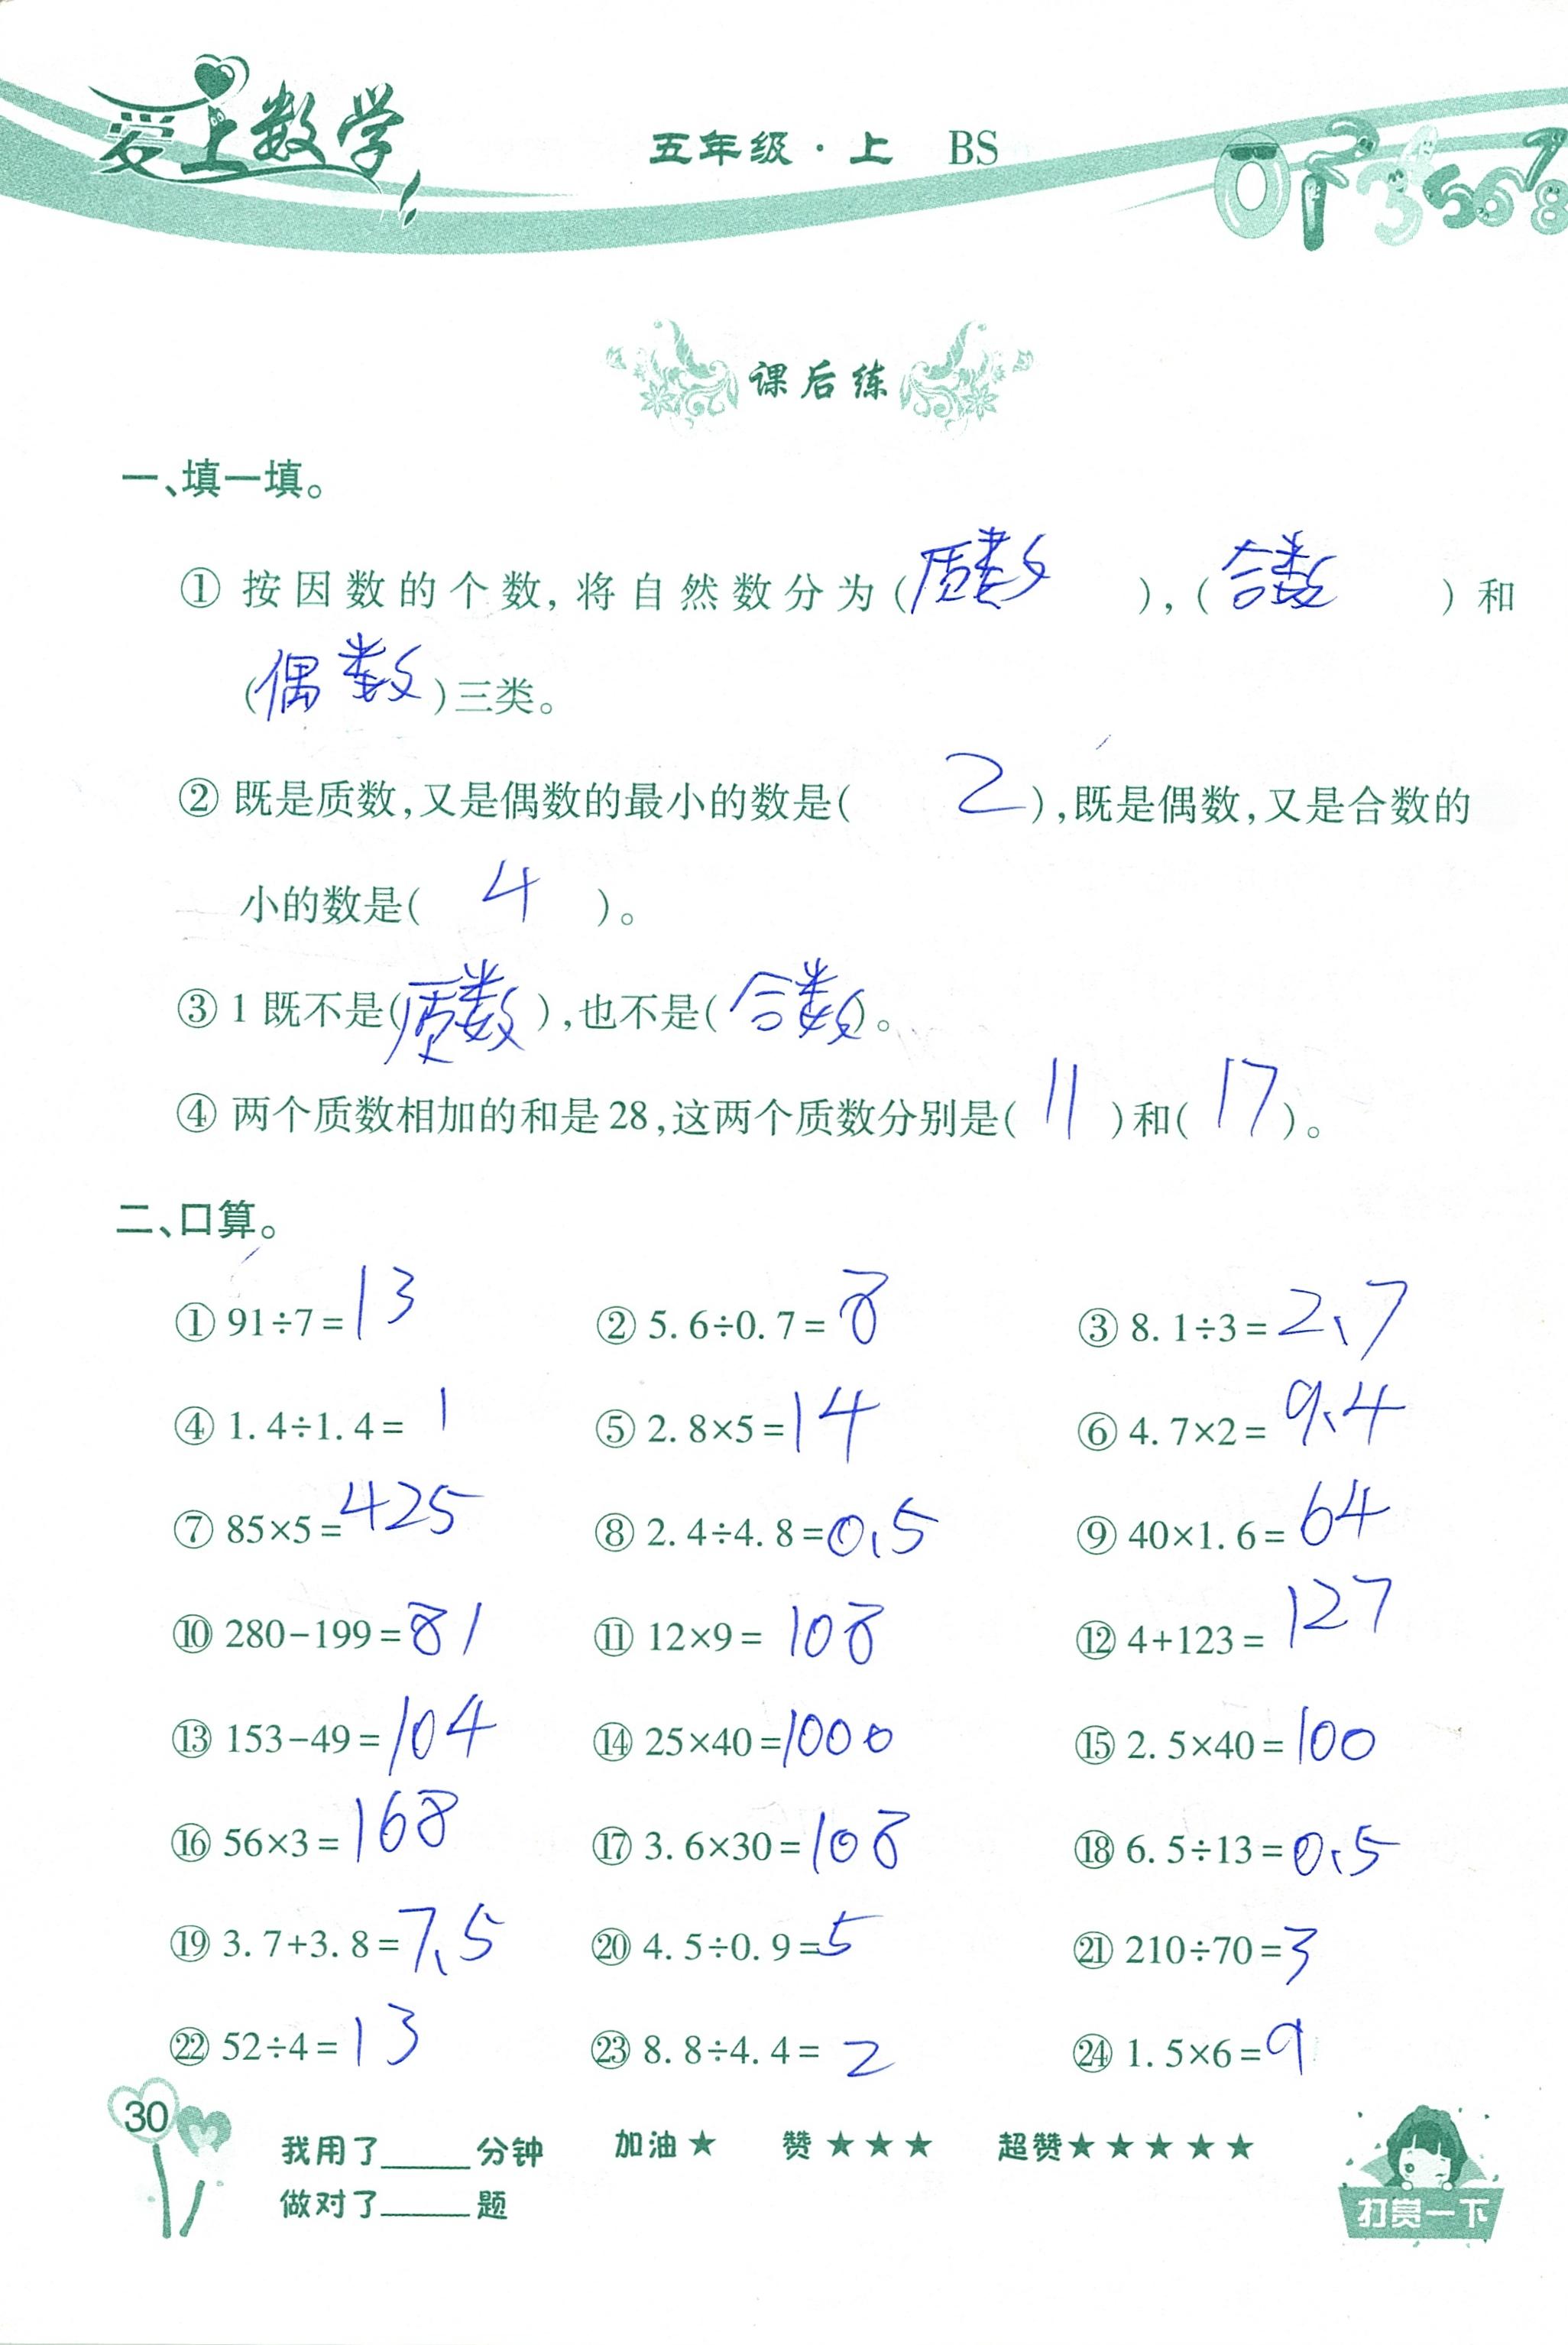 爱上数学
五年级·上 BS
课后练
一、填一填。
① 按因数的个数,将自然数分为(质数),(合数)和
(偶数)三类。
② 既是质数,又是偶数的最小的数是(2),既是偶数,又是合数的
小的数是(4)。
③ 1 既不是(质数),也不是(合数)。
④ 两个质数相加的和是28,这两个质数分别是(11)和(17)。
二、口算。
① 91÷7=13 ② 5.6÷0.7=8 ③ 8.1÷3=2.7
④ 1.4÷1.4=1 ⑤ 2.8×5=14 ⑥ 4.7×2=9.4
⑦ 85×5=425 ⑧ 2.4÷4.8=0.5 ⑨ 40×1.6=64
⑩ 280-199=81 ⑪ 12×9=108 ⑫ 4+123=127
⑬ 153-49=104 ⑭ 25×40=1000 ⑮ 2.5×40=100
⑯ 56×3=168 ⑰ 3.6×30=108 ⑱ 6.5÷13=0.5
⑲ 3.7+3.8=7.5 ⑳ 4.5÷0.9=5 ㉑ 210÷70=3
㉒ 52÷4=13 ㉓ 8.8÷4.4=2 ㉔ 1.5×6=9
30
我用了_____分钟 加油★ 赞★★★ 超赞★★★★★
做对了_____题
打赏一下